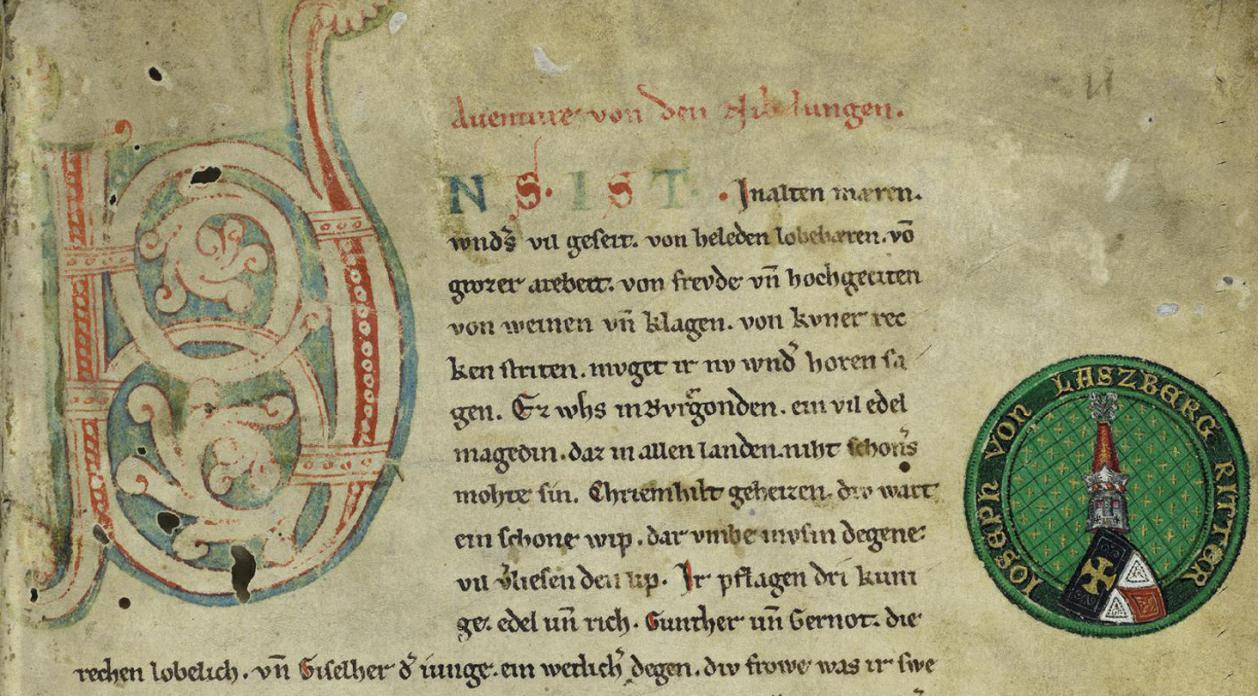 Auenture von den Nibelungen.
U
N S. I S T. Inalten mæren.
wnds̄ vil geseit. von heleden lobebæren. vō
grozer arebeit. von frevde vn̄ hochgeciten
von weinen vn̄ klagen. von kvner rec
ken striten. mvget ir nv wnd̄ horen sa
gen. Ez whs in Bvrgonden. ein vil edel
magedin. daz in allen landen. niht schons̄
mohte sin. Chriemhilt geheizen. div wart
ein schone wip. dar vmbe mvsin degene
vil v̄liesen den lip. Ir pflagen dri kuni
ge. edel un̄ rich. Gunther un̄ Gernot. die
rechen lobelich. vn̄ Giselher d̄ iunge. ein wetlich̄ degen. div frowe was ir swe
IOSEPH VON LASZBERG RITTER